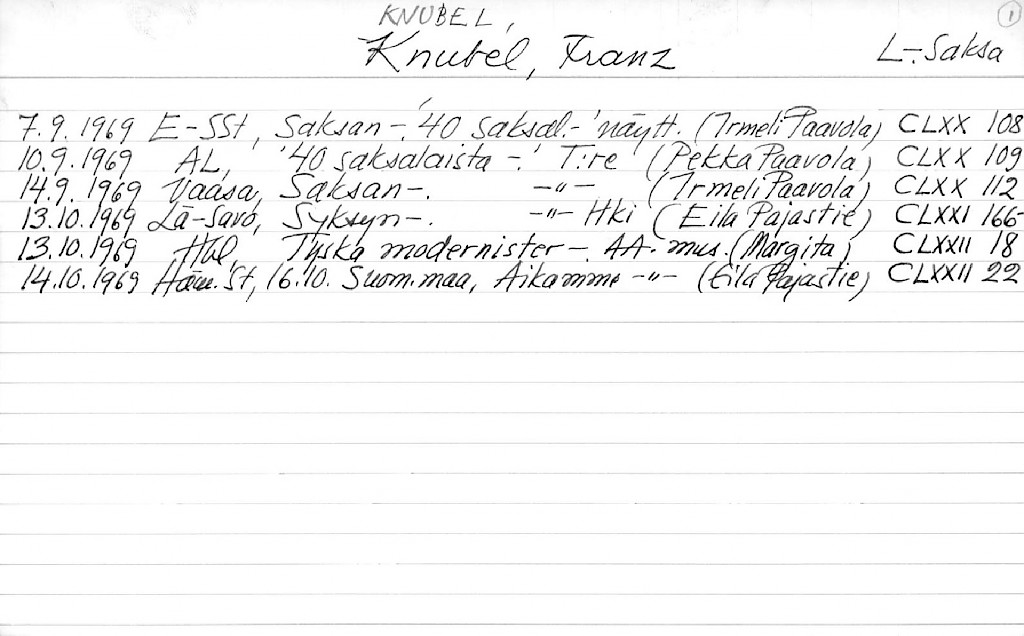 KNUBEL, 1
Knubel, Franz L-Saksa
7.9.1969 E-SSt, Saksan-. '40 saksal.-' näytt. (Irmeli Paavola) CLXX 108
10.9.1969 AL, '40 saksalaista-' T:re (Pekka Paavola) CLXX 109
14.9.1969 Vaasa, Saksan-. -"- (Irmeli Paavola) CLXX 112
13.10.1969 Lä-Savo, Syksyn-. -"- Hki (Eila Pajastie) CLXXI 166-
13.10.1969 Hbl, Tyska modernister- AA. mus. (Margita) CLXXII 18
14.10.1969 Häm.St, 16.10. Suom.maa, Aikamme -"- (Eila Pajastie) CLXXII 22